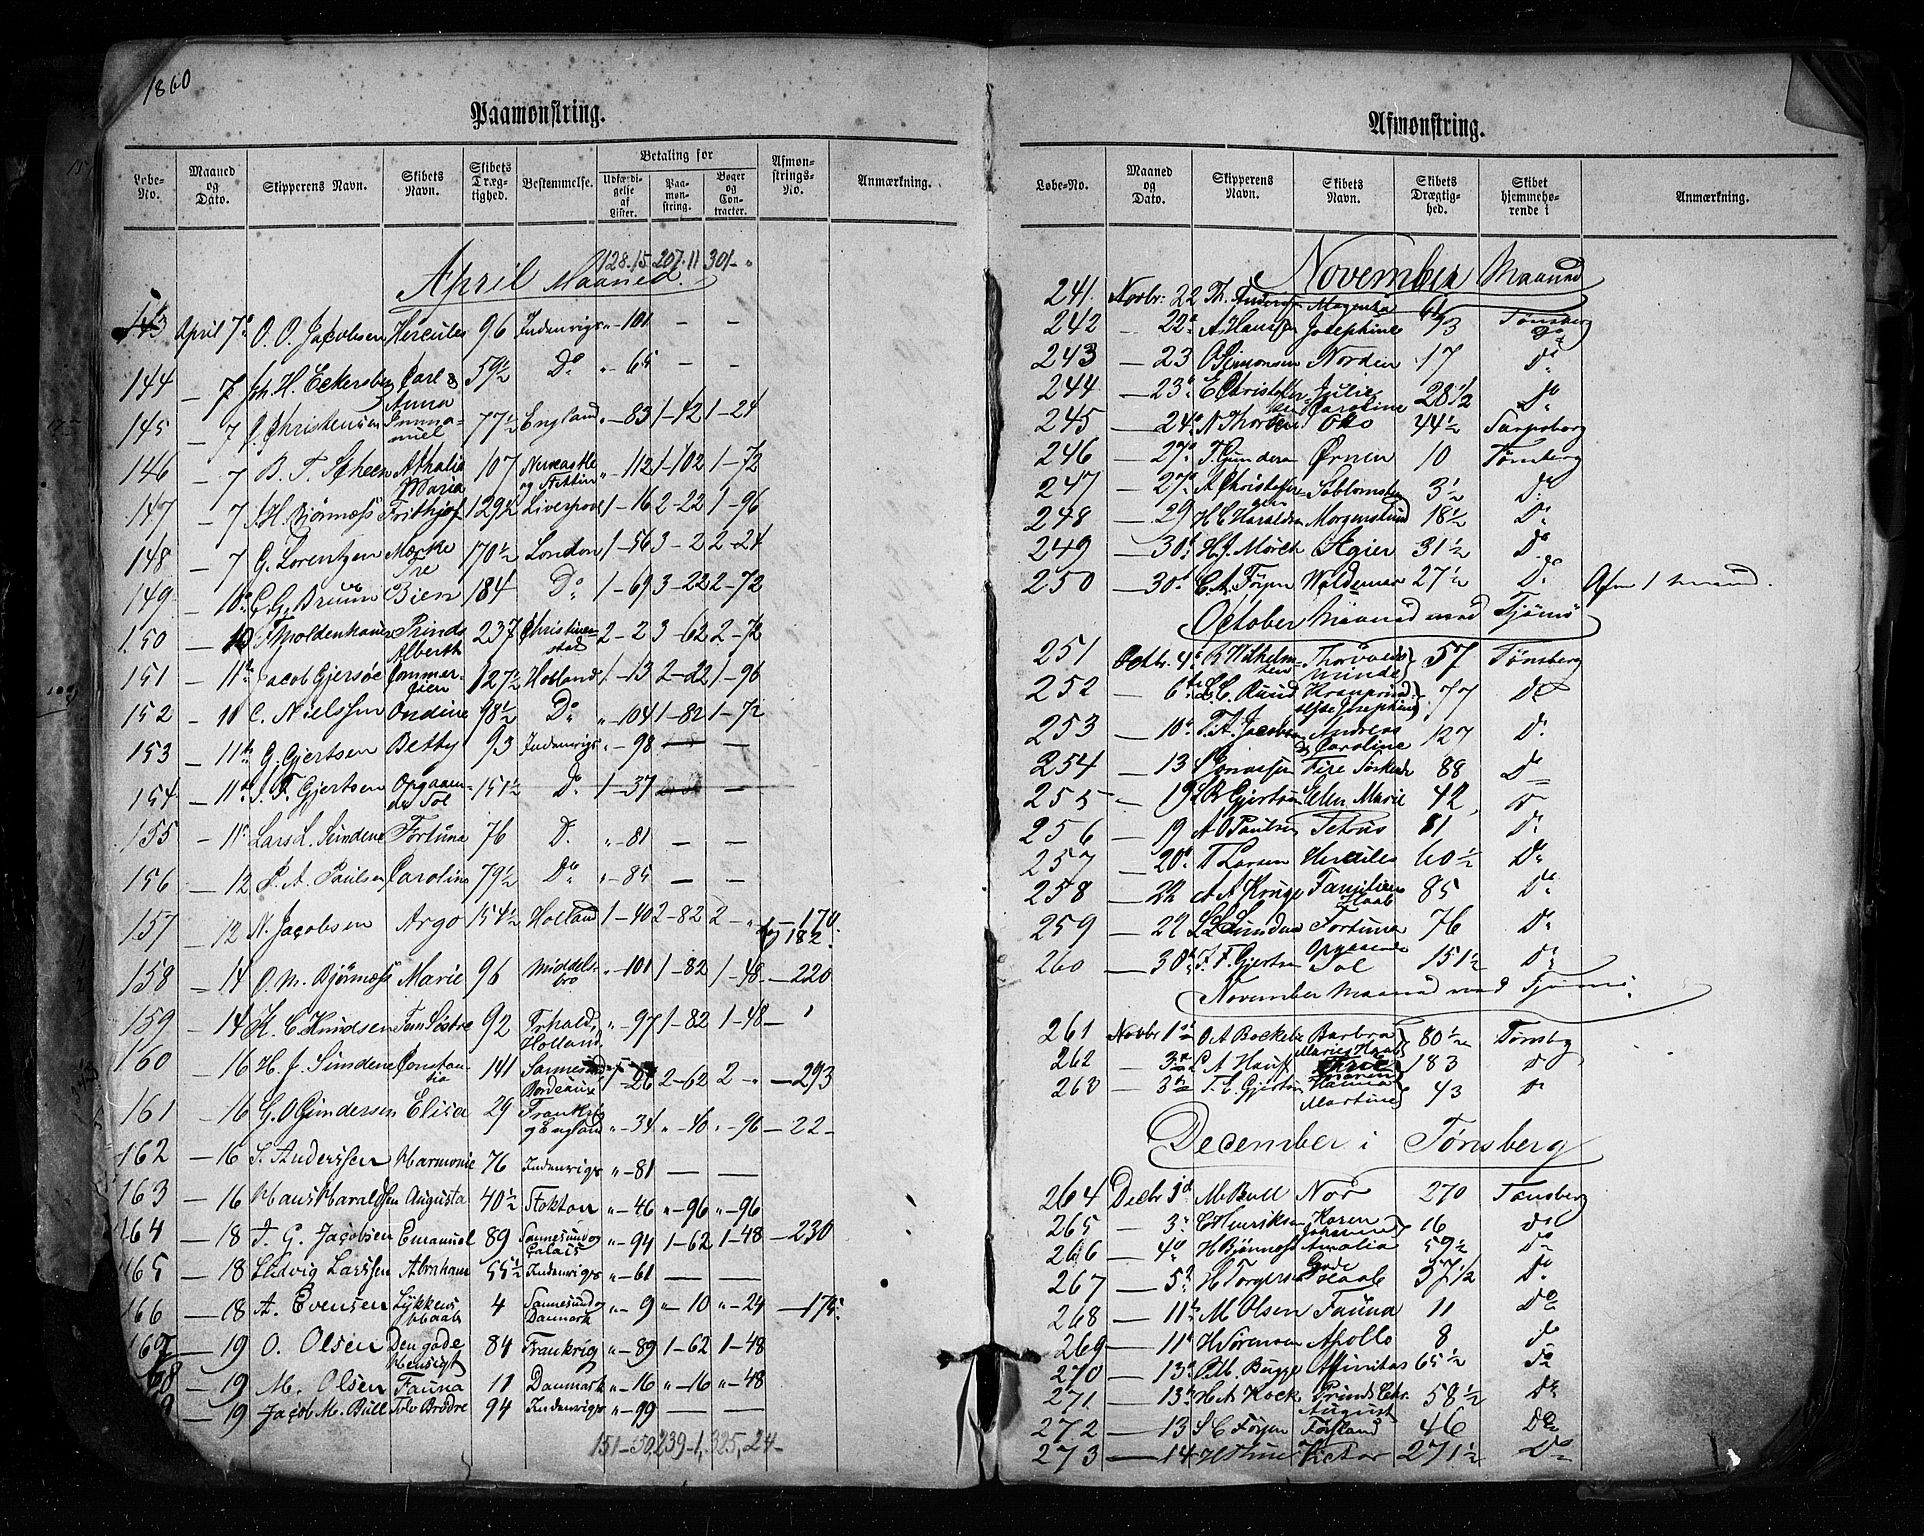 1860
Paamonstring.
Løbe-No. | Maaned og Dato. | Skipperens Navn. | Skibets Navn. | Skibets Dræg-tighed. | Bestemmelse. | Betaling for | Udfærdi-gelse af Lister. | Paa-mon-string. | Bøger og Con-tracter. | Afmøn-strings-No. | Anmærkning.
April Maaned. 128-15 207-11 301-"
143 April 7de O. O. Jacobsen Hercules 96 Indenrigs "-101 — —
144 — 7 Joh. H. Eckersberg Carl & Anna 59½ Do "-65 — —
145 — 7 J. Christensen Imma-nuel 77½ England "-83 1-42 1-24
146 — 7 B. T. Scheen Athalia Maria 107 Newcastle og Stettin "-112 1-102 1-72
147 — 7 J. H. Bjørness Frithjof 129½ Liverpool 1-16 2-22 1-96
148 — 7 G. Lorentzen Mærke Tre 170½ London 1-56 3-2 2-24
149 — 10de C. G. Bruun Bien 184 Do 1-69 3-22 2-72
150 — 10 F. Moldenhauer Prinds Alberth 237 Christian-stad 2-2 3-62 2-72
151 — 11te Jacob Gjersøe Commer-cien 127½ Holland 1-13 2-22 1-96
152 — 10 C. Nielssen Ondine 98½ Do "-104 1-82 1-72
153 — 11te G. Gjertsen Betty 93 Indenrigs "-98 — —
154 — 11te J. F. Gjertsen Opgaaen-de Sol 151½ Do 1-37 — —
155 — 11te Lars L. Sundene Fortuna 76 Do "-81 — —
156 — 12 P. A. Paulsen Caroline 79½ Do "-85 — —
157 — 12 N. Jacobsen Argo 154½ Holland 1-40 2-82 2-" — 170 og 182.
158 — 14 O. M. Bjørness Marie 96 Middels-bro "-101 1-82 1-48 — 220
159 — 14 K. C. Knudsen Fem Søstre 92 Holland "-97 1-82 1-48 —
160 — 16 H. J. Sundene Constan-tia 141 Sannesund Bordeaux 1-26 2-62 2-" — 293
161 — 16 G. O. Gundersen Elisa 29 Frankrig og England "-34 "-40 "-96 — 22-
162 — 16 S. Anderssen Harmonie 76 Indenrigs "-81 — —
163 — 16 Hans Haraldsen Augusta 40½ Stokton "-46 "-96 "-96
164 — 18 A. G. Jacobsen Emanuel 89 Sannesund og Calais "-94 1-62 1-48 — 230
165 — 18 Ludvig Larssen Abraham 55½ Indenrigs "-61 — —
166 — 18 A. Evensen Lykkens Haab 4 Sannesund og Danmark "-9 "-10 "-24 — 175.
167 — 19 O. Olsen Den gode Hensigt 84 Frankrig "-89 1-62 1-48
168 — 19 M. Olsen Fauna 11 Danmark "-16 "-16 "-48
169 — 19 Jacob M. Bull Tolv Brødre 94 Indenrigs "-99 — —
151-50, 239-1, 325, 24-
Afmonstring.
Løbe-No. | Maaned og Dato. | Skipperens Navn. | Skibets Navn. | Skibets Drægtig-hed. | Skibet hjemmehø-rende i | Anmærkning.
November Maaned
241. Novbr. 22 Th. Anderssen Magentha
242 — 22de A. Hanssen Josephine 93 Tønsberg
243 — 23 O. Simonsen Norden 17 Do
244 — 23de E. Christoffer-sen Julie Caroline 28½ Do
245 — 24de N. Thorsen Otto 44½ Sarpsborg
246 — 27de T. Gunders Ørnen 10 Tønsberg
247 — 27de A. Christoffer-sen Søblomsten 3½ Do
248 — 29 H. C. Haraldsen Morgenstund 18½ Do
249 — 30te H. J. Mørch Ægier 31½ Do
250 — 30te C. A. Føyen Waldemar 27½ Do Afm 1 mand.
October Maaned med Tjømø
251 Octbr. 4de R. Wilhelm-sen Thorvalds Minde 57 Tønsberg
252 — 6te L. C. Ruud Kronprind-sesse Josephine 77 Do
253 — 10de T. A. Jacobsen Andreas & Caroline 127 Do
254 — 13 Fire Søskende 88 Do
255 — 19 Gjertsen Ellen Marie 42 Do
256 — 19 A. O. Paulsen Petrus 81 Do
257 — 20de T. Larsen Hercules 60½ Do
258 — 22 A. A. Kruge Familiens Haab 85 Do
259 — 22 L. L. Sunden Fortuna 76 Do
260 — 30te J. F. Gjertsen Opgaaende Sol 151½ Do
November Maaned med Tjømø.
261 Novbr 1ste O. A. Bockel Barbra Maries Haab 80½ Tønsbg
262 — 3die C. A. Hansen 183 Do
263 — 3die T. C. Gjertsen Hanna Martine 43 Do
December i Tønsberg
264 Decbr 1ste M. Bull Nor 270 Tønsberg
265 — 3die C. Henriksen Karen Johanna 16 Do
266 — 4de H. Bjørness Amalia 59½ Do
267 — 5te H. Torgersen Gode Haab 37½ Do
268 — 11te M. Olsen Fauna 11 Do
269 — 11te H. Sørensen Apollo 8 Do
270 — 13de O. M. Bugge Affinitas 65½ Do
271 — 13de H. A. Kock Prinds Chr. August 58½ Do
272 — 13 S. C. Føyen 46 Do
273 — 14 H. Thue Victor 271½ Do